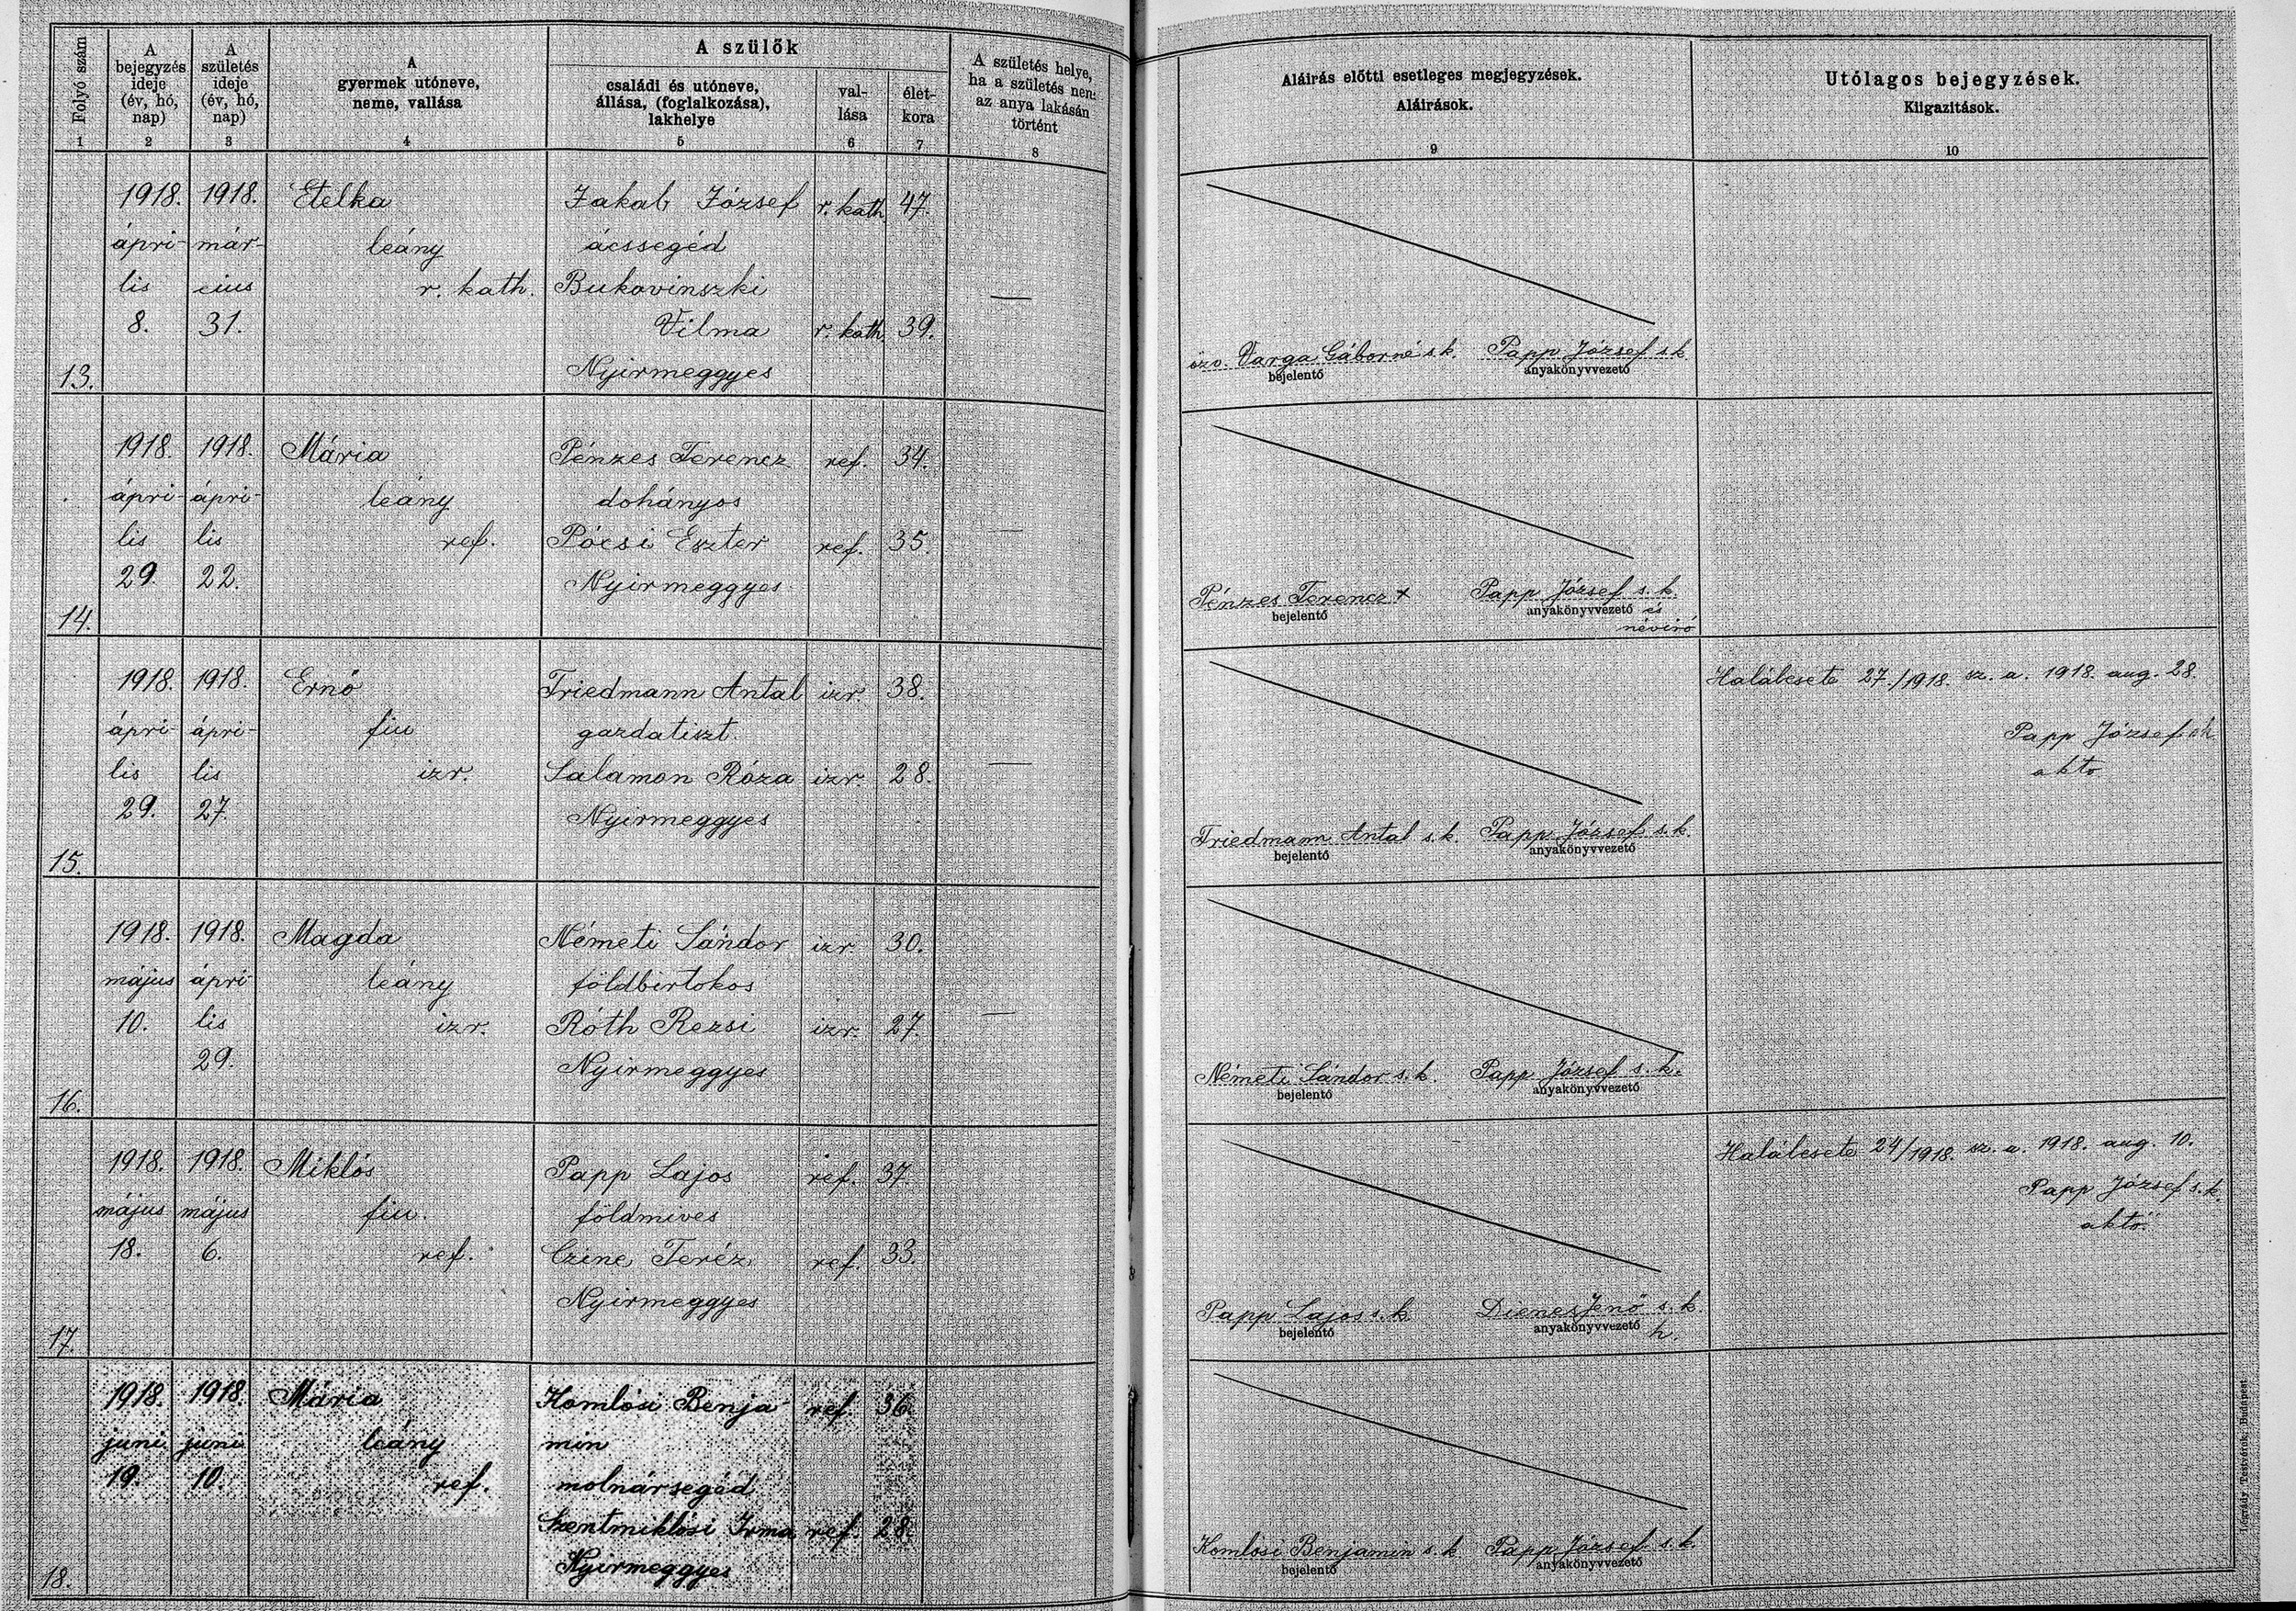 Folyó szám
1
A
bejegyzés
ideje
(év, hó,
nap)
2
A
születés
ideje
(év, hó,
nap)
3
A
gyermek utóneve,
neme, vallása
4
A szülők
családi és utóneve,
állása, (foglalkozása),
lakhelye
5
val-
lása
6
élet-
kora
7
A születés helye,
ha a születés nem
az anya lakásán
történt
8
Aláírás előtti esetleges megjegyzések.
Aláirások.
9
Utólagos bejegyzések.
Kiigazitások.
10
13.
1918.
ápri-
lis
8.
1918.
már-
cius
31.
Etelka
leány
r. kath.
Jakab József r. kath. 47.
ácssegéd
Bukovinszki
Vilma r. kath. 39.
Nyirmeggyes
özv. Varga Gáborné s.k. Papp József s.k.
bejelentő anyakönyvvezető
14.
1918.
ápri-
lis
29.
1918.
ápri-
lis
22.
Mária
leány
ref.
Pénzes Ferencz ref. 34.
dohányos
Pócsi Eszter ref. 35.
Nyirmeggyes
Pénzes Ferencz x Papp József s. k.
bejelentő anyakönyvvezető és
névíró
15.
1918.
ápri-
lis
29.
1918.
ápri-
lis
27.
Ernő
fiu
izr.
Friedmann Antal izr. 38.
gazdatiszt.
Salamon Róza izr. 28.
Nyirmeggyes
Friedmann Antal s.k. Papp József s.k.
bejelentő anyakönyvvezető
Halálesete 27./1918. sz. a. 1918. aug. 28.
Papp József sk
akto
16.
1918.
május
10.
1918.
ápri
lis
29.
Magda
leány
izr.
Németi Sándor izr. 30.
földbirtokos
Róth Rezsi izr. 27.
Nyirmeggyes
Németi Sándor s.k. Papp József s. k.
bejelentő anyakönyvvezető
17.
1918.
május
18.
1918.
május
6.
Miklós
fiu.
ref.
Papp Lajos ref. 37.
földmives
Czine Teréz ref. 33.
Nyirmeggyes
Papp Lajos s. k. Dienes Jenő s. k.
bejelentő anyakönyvvezető h.
Halálesete 24/1918. sz. a. 1918. aug. 10.
Papp József s. k.
aktő.
18.
1918.
juni
19.
1918.
juni
10.
Mária
leány
ref.
Komlósi Benja- ref. 36.
min
molnársegéd
Szentmiklósi Irma ref. 28.
Nyirmeggyes
Komlósi Benjamin s. k Papp József s. k.
bejelentő anyakönyvvezető
Légrády Testvérek, Budapest